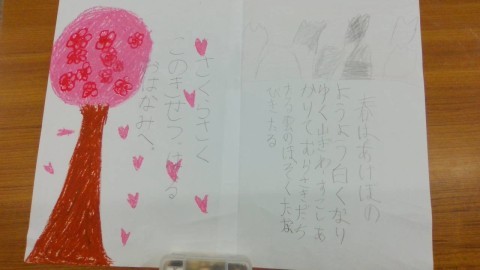 春はあけぼの
ようよう白くなり
ゆく山ぎわ、すこしあ
かりてむらさきだち
たる雲のほそくたな
びきたる
さくらさく
このきせつ
おはなみへ